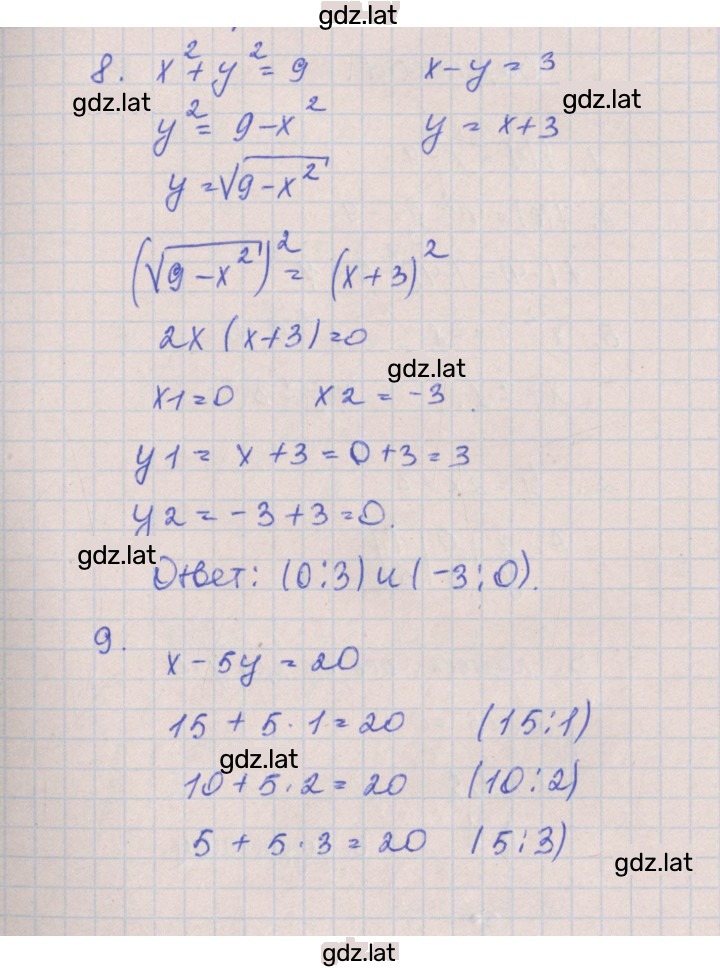 gdz.lat
8. x² + y² = 9 x - y = 3
gdz.lat gdz.lat
y² = 9 - x² y = x + 3
y = √9 - x²
(√9 - x²)² = (x + 3)²
2x (x + 3) = 0
gdz.lat
x1 = 0 x2 = -3
y1 = x + 3 = 0 + 3 = 3
y2 = -3 + 3 = 0.
gdz.lat
Ответ: (0;3) и (-3;0).
9.
x - 5y = 20
15 + 5 · 1 = 20 (15;1)
gdz.lat
10 + 5 · 2 = 20 (10;2)
5 + 5 · 3 = 20 (5;3)
gdz.lat
gdz.lat